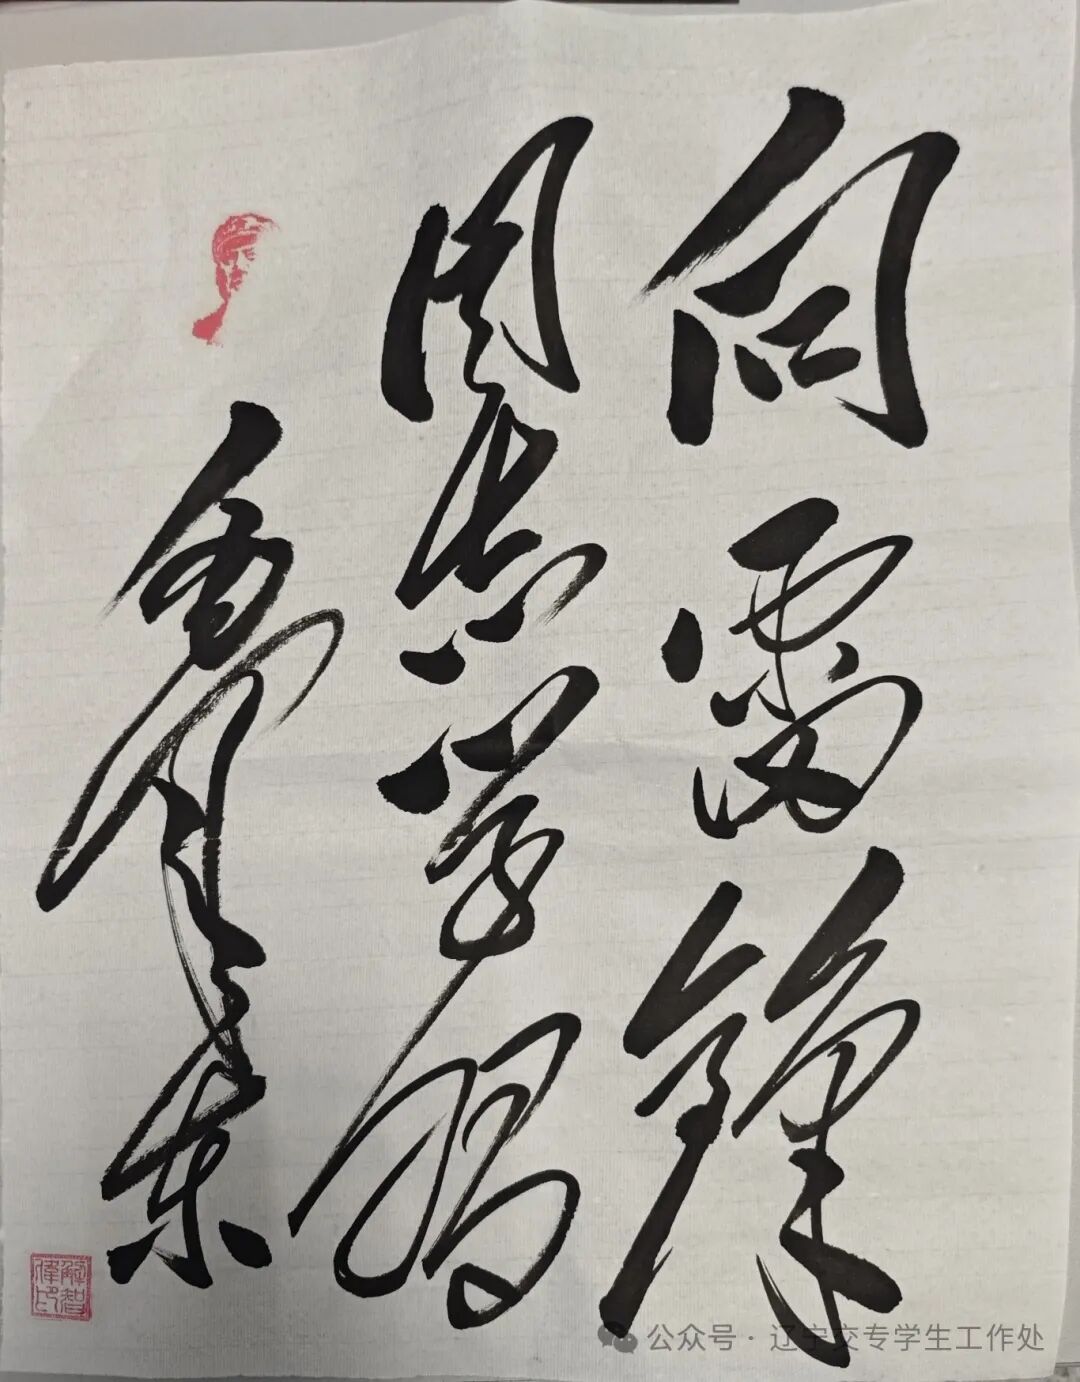 向雷锋
同志学习
毛泽东
解智
偉印
公众号·辽宁交专学生工作处